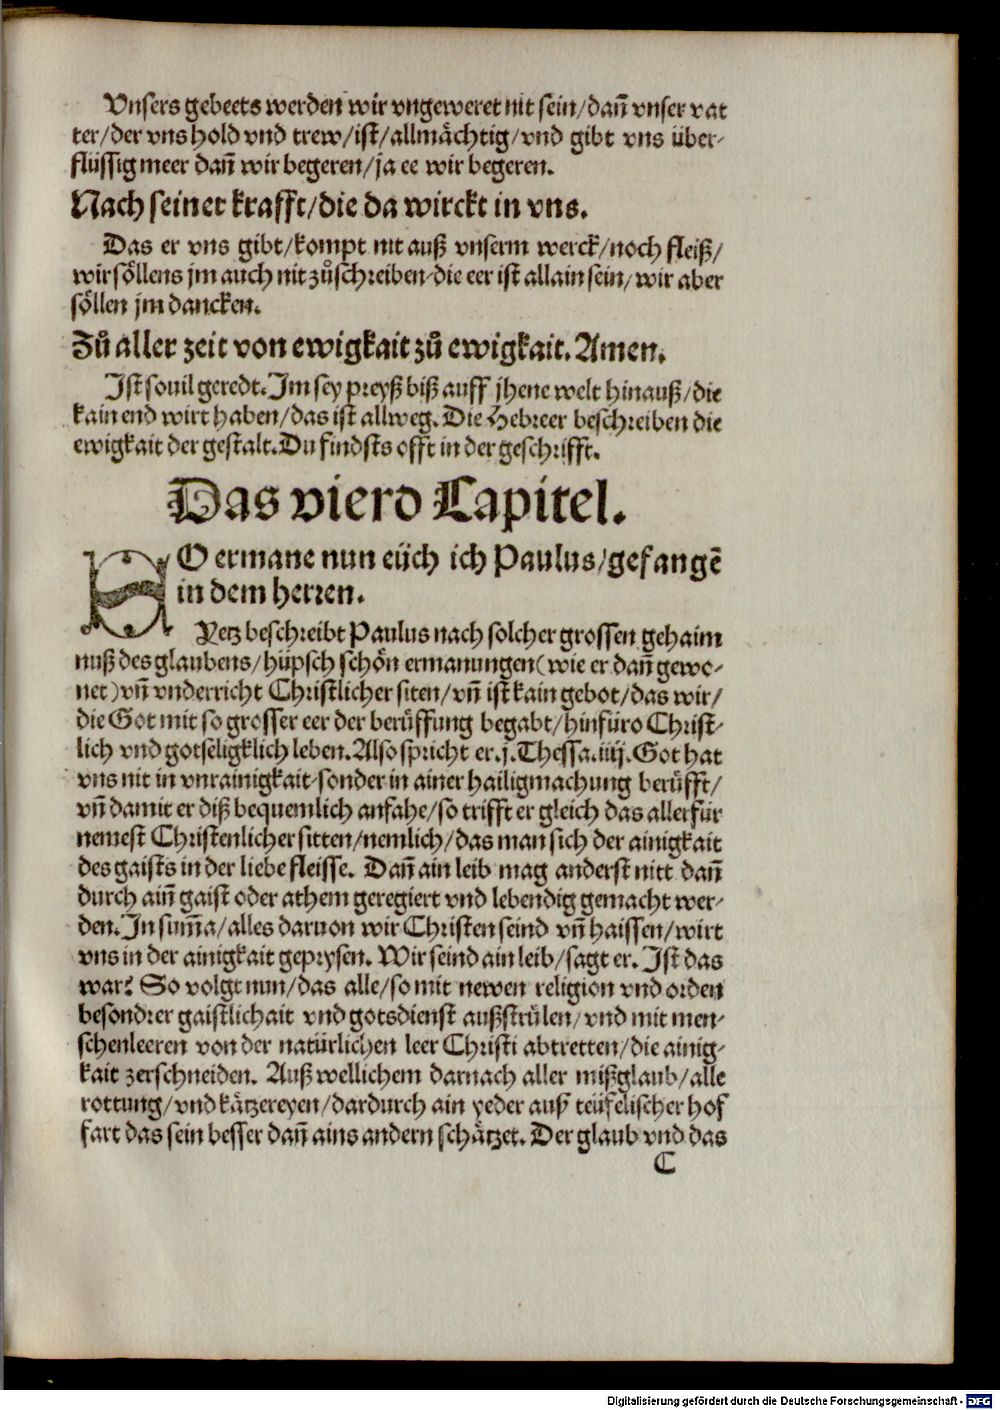 Vnsers gebeets werden wir vngeweret nit sein/dañ vnser vat
ter/der vns hold vnd trew/ist/allmächtig/vnd gibt vns über-
flüssig meer dañ wir begeren/ja ee wir begeren.
Nach seiner krafft/die da wirckt in vns.
Das er vns gibt/kompt nit auß vnserm werck/noch fleiß/
wir söllens jm auch nit zůschreiben/die eer ist allain sein/wir aber
söllen jm dancken.
Zů aller zeit von ewigkait zů ewigkait. Amen.
Ist souil geredt. Im sey preyß biß auff jhene welt hinauß/die
kain end wirt haben/das ist allweg. Die Hebreer beschreiben die
ewigkait der gestalt. Du findsts offt in der geschrifft.
Das vierd Capitel.
SO ermane nun eüch ich Paulus/gefangē
in dem herren.
Yetz beschreibt Paulus nach solcher grossen gehaim
nuß des glaubens/hüpsch schön ermanungen (wie er dañ gewo-
net) vñ vnderricht Christlicher siten/vñ ist kain gebot/das wir/
die Got mit so grosser eer der berüffung begabt/hinfüro Christ-
lich vnd gotseligklich leben. Also spricht er. j. Thessa. iiij. Got hat
vns nit in vnrainigkait/sonder in ainer hailigmachung berüfft/
vñ damit er diß bequemlich anfahe/so trifft er gleich das allerfür
nemest Christenlicher sitten/nemlich/das man sich der ainigkait
des gaists in der liebe fleisse. Dañ ain leib mag anderst nitt dañ
durch aiñ gaist oder athem geregiert vnd lebendig gemacht wer-
den. In sum̄a/alles daruon wir Christen seind vñ haissen/wirt
vns in der ainigkait geprysen. Wir seind ain leib/sagt er. Ist das
war? So volgt nun/das alle/so mit newen religion vnd orden
besondrer gaistlichait vnd gotsdienst außstrülen/vnd mit men-
schenleeren von der natürlichen leer Christi abtretten/die ainig-
kait zerschneiden. Auß wellichem darnach aller mißglaub/alle
rottung/vnd kätzereyen/dardurch ain yeder auß teüfelischer hof
fart das sein besser dañ ains andern schätzet. Der glaub vnd das
C
Digitalisierung gefördert durch die Deutsche Forschungsgemeinschaft - DFG